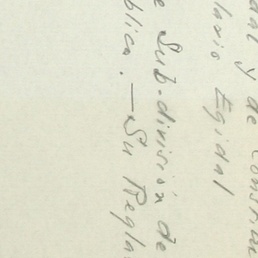 dal y de Constru
lario Egidal
e Sub-división de
blica. — Su Regla